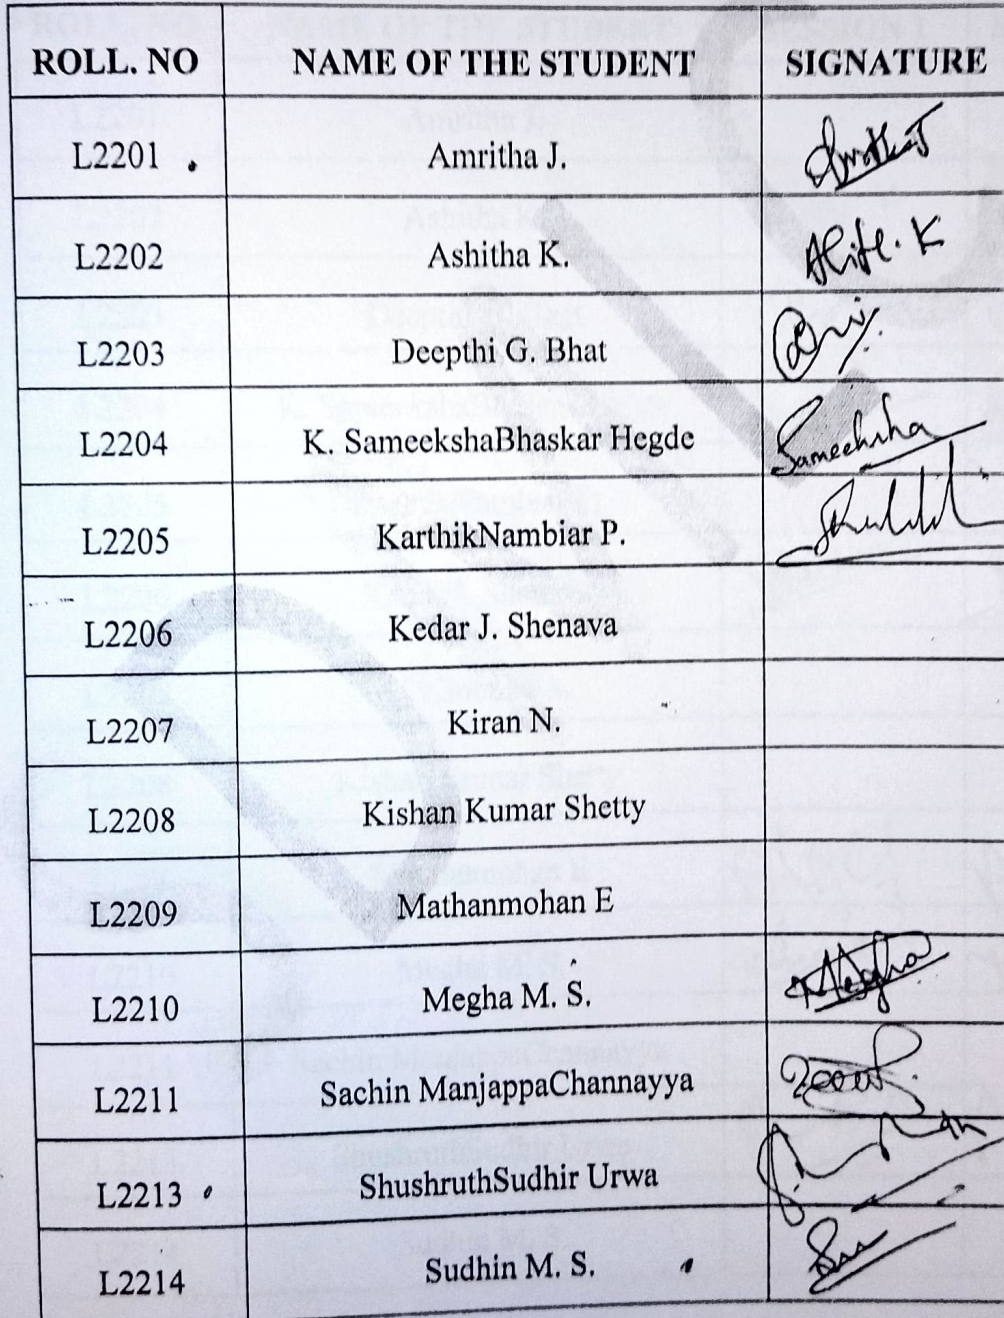 ROLL. NO NAME OF THE STUDENT SIGNATURE
L2201 Amritha J.
L2202 Ashitha K.
L2203 Deepthi G. Bhat
L2204 K. SameekshaBhaskar Hegde Sameeksha
L2205 KarthikNambiar P.
L2206 Kedar J. Shenava
L2207 Kiran N.
L2208 Kishan Kumar Shetty
L2209 Mathanmohan E
L2210 Megha M. S. Megha
L2211 Sachin ManjappaChannayya
L2213 ShushruthSudhir Urwa
L2214 Sudhin M. S.